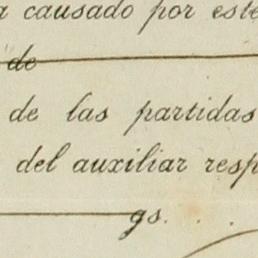 a causado por este
de
de las partidas
del auxiliar resp
gs. . .